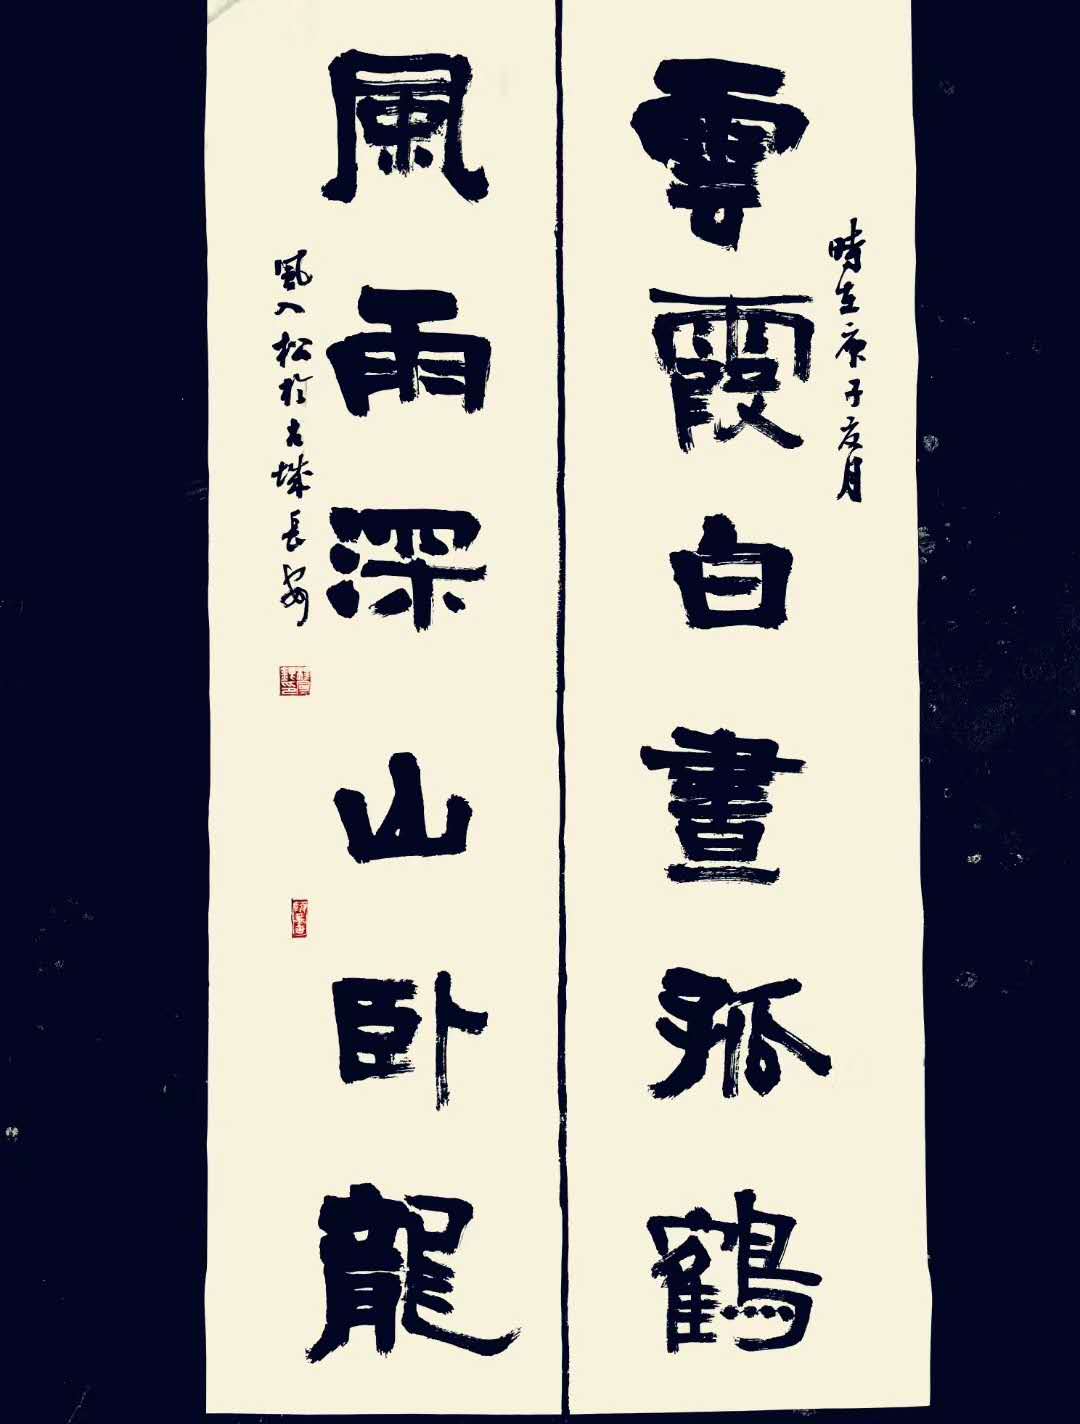 時在庚子夏月
雲霞白晝孤鶴
風雨深山卧龍
風入松於古城長安